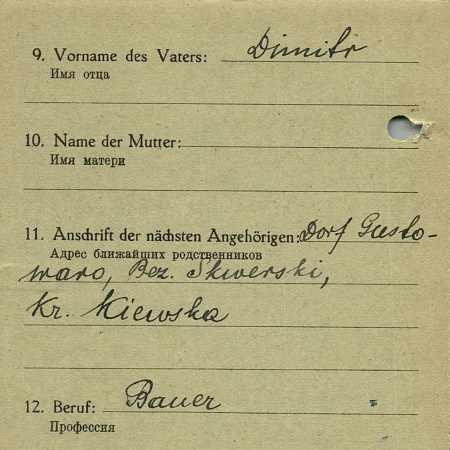 9. Vorname des Vaters: Dimitr
Имя отца
10. Name der Mutter:
Имя матери
11. Anschrift der nächsten Angehörigen: Dorf Gusto-
Адрес ближайших родственников
waro, Bez. Skwerski,
Kr. Kiewska
12. Beruf: Bauer
Профессия